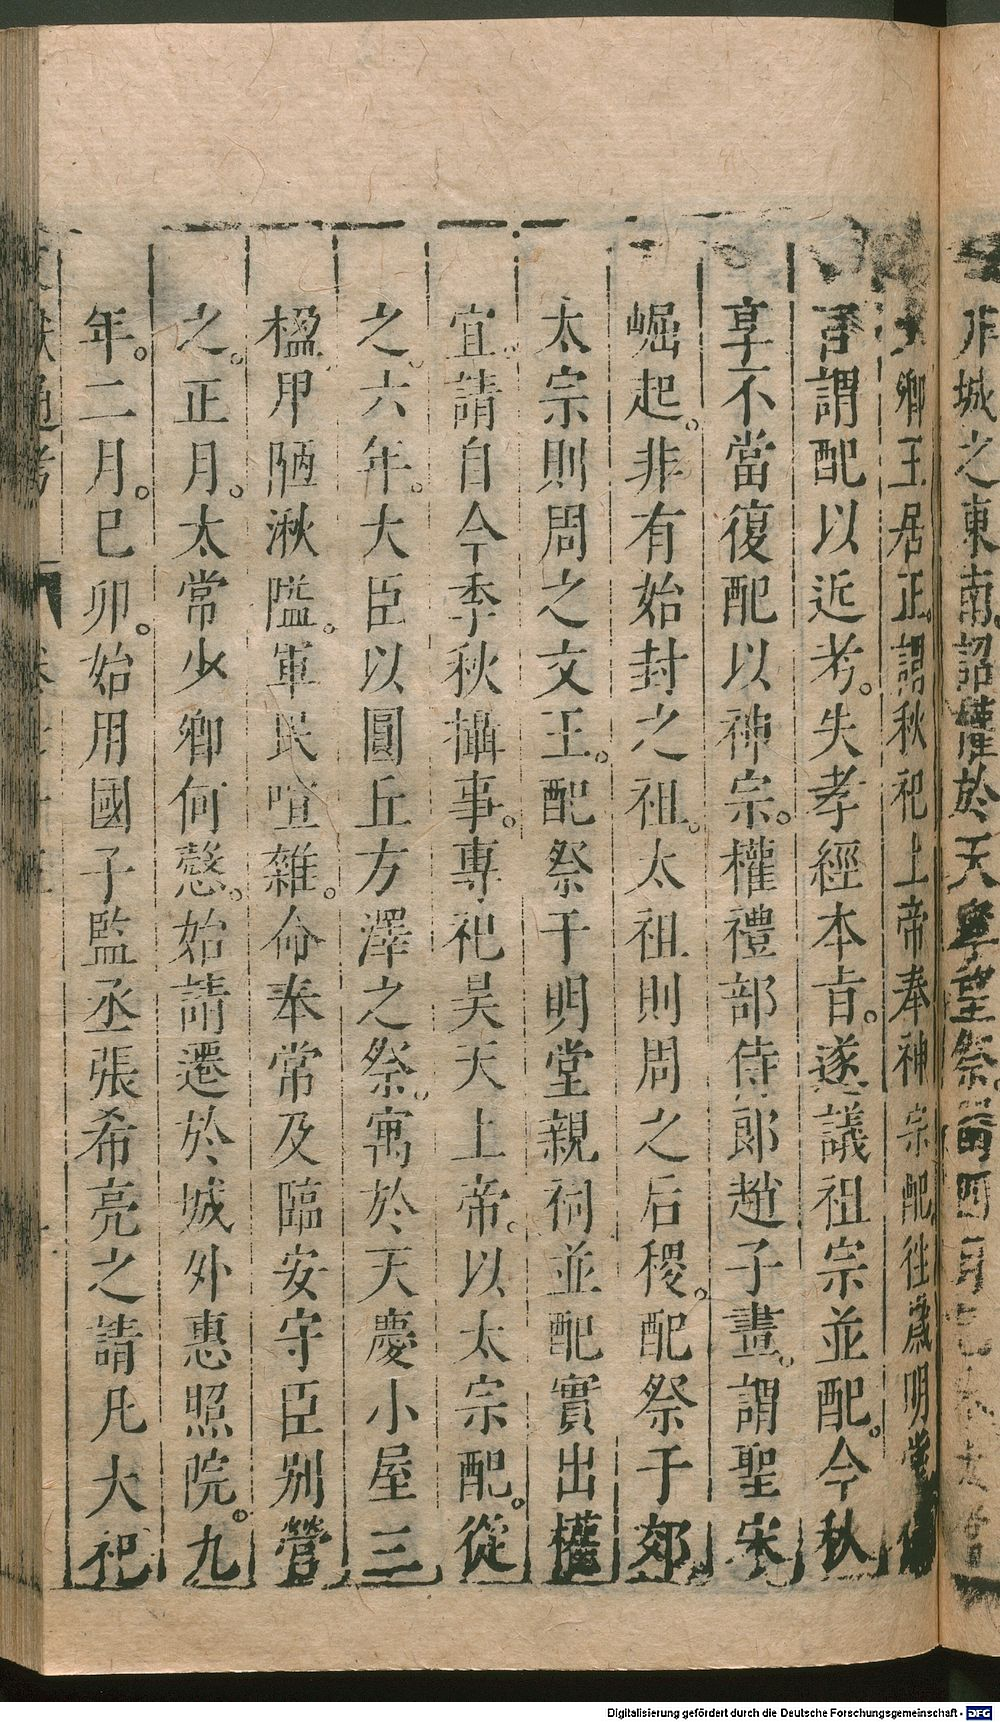 府城之東南詔權於天皇望祭
少卿王居正謂秋祀上帝奉神宗配往歲明堂
言謂配以近考。失孝經本旨。遂議祖宗並配。今秋
享不當復配以神宗。權禮部侍郎趙子晝。謂聖宋
崛起。非有始封之祖。太祖則周之后稷。配祭于郊
太宗則周之文王。配祭于明堂親祠並配實出權
宜。請自今季秋攝事。專祀昊天上帝。以太宗配。從
之。六年。大臣以圓丘方澤之祭。寓於天慶小屋三
楹。甲陋湫隘。軍民喧雜。命奉常及臨安守臣別營
之。正月。太常少卿何慤。始請遷於城外惠照院。九
年。二月。巳卯。始用國子監丞張希亮之請凡大祀
Digitalisierung gefördert durch die Deutsche Forschungsgemeinschaft - DFG